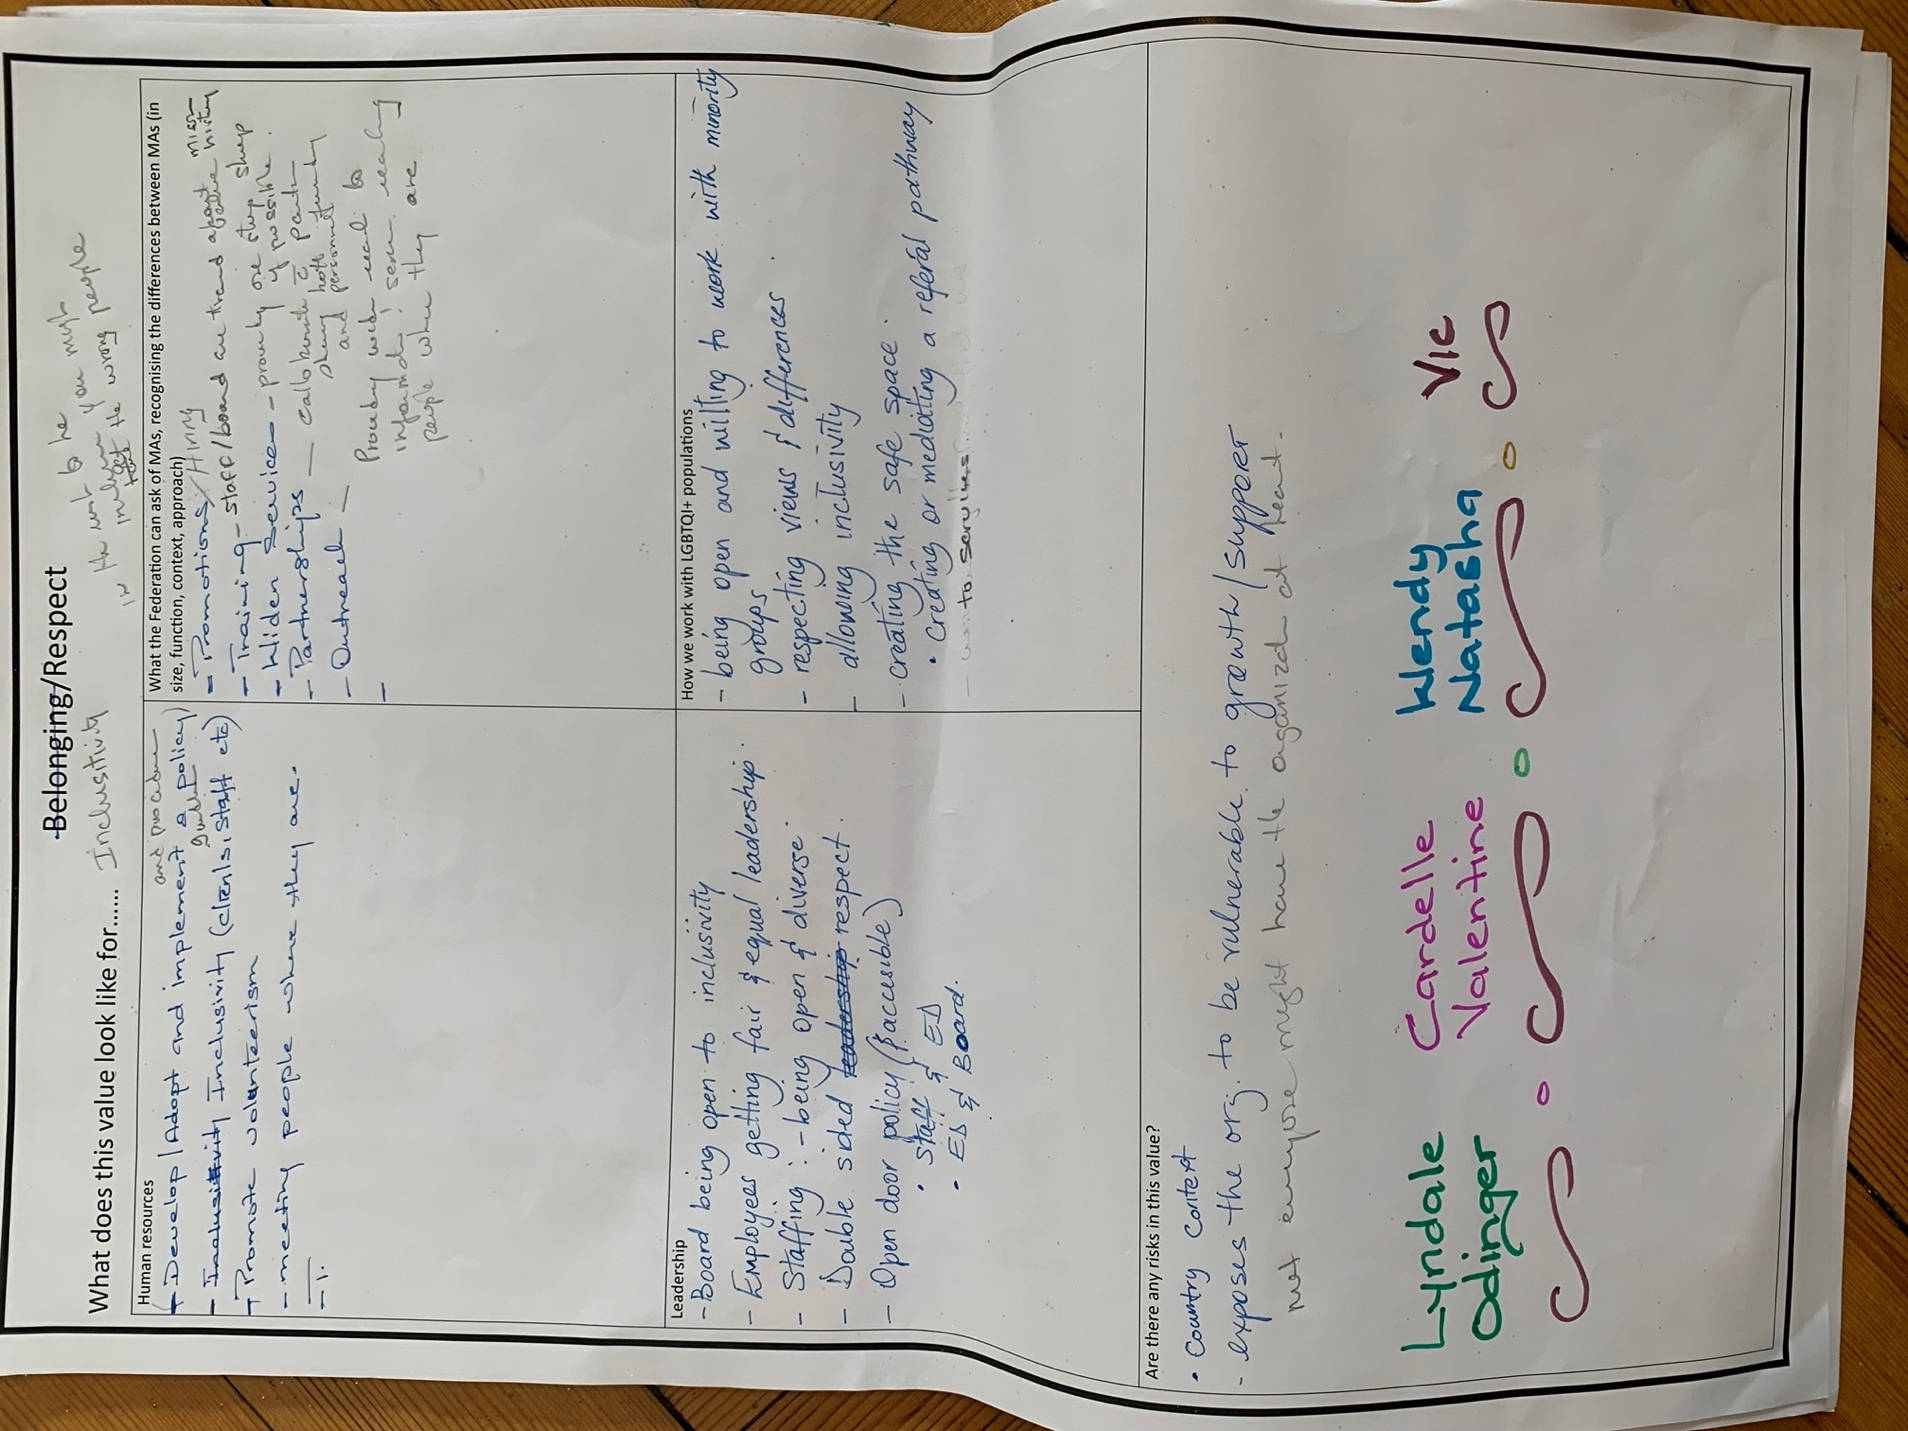 Belonging/Respect
What does this value look like for...... Inclusitivity
in the want to be
inclusive you might
get the wrong people
Human resources
and procedure
- Develop / Adopt and implement a policy)
- Inclusitivity Inclusivity (clients, staff etc)
- Promote volunteerism
- meeting people where they are.
What the Federation can ask of MAs, recognising the differences between MAs (in
size, function, context, approach)
- Promotions / Hiring
- Training - staff/board are trained
- Wider Services - providing one stop shop
if possible.
- Partnerships — collaborate c̄
sharing both
and personnel
- Outreach —
people where they are
-
Leadership
- Board being open to inclusivity
- Employees getting fair & equal leadership.
- Staffing: - being open & diverse.
- Double sided leadership respect.
- Open door policy (& accessible)
• Staff & ED
• ED & Board.
How we work with LGBTQI+ populations
- being open and willing to work with minority
groups
- respecting views & differences
- allowing inclusivity
- creating the safe space.
• Creating or mediating a referal pathway
to services
Are there any risks in this value?
• Country Context
- exposes the org. to be vulnerable to growth/support
not everyone might have the organizatn at heart.
Lyndale
Odinger
Cardelle
Valentine
Wendy
Natasha
Vic